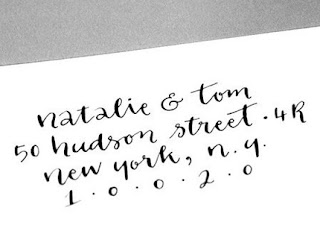 natalie & tom
50 hudson street · 4R
new york, n.y.
1 · 0 · 0 · 2 · 0